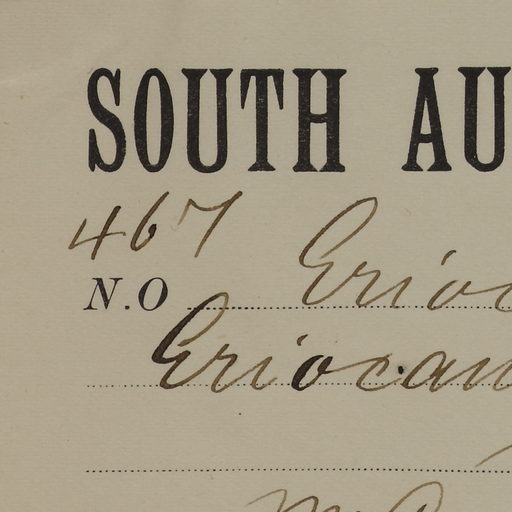 SOUTH AU
467
N.O Erioc
Eriocau